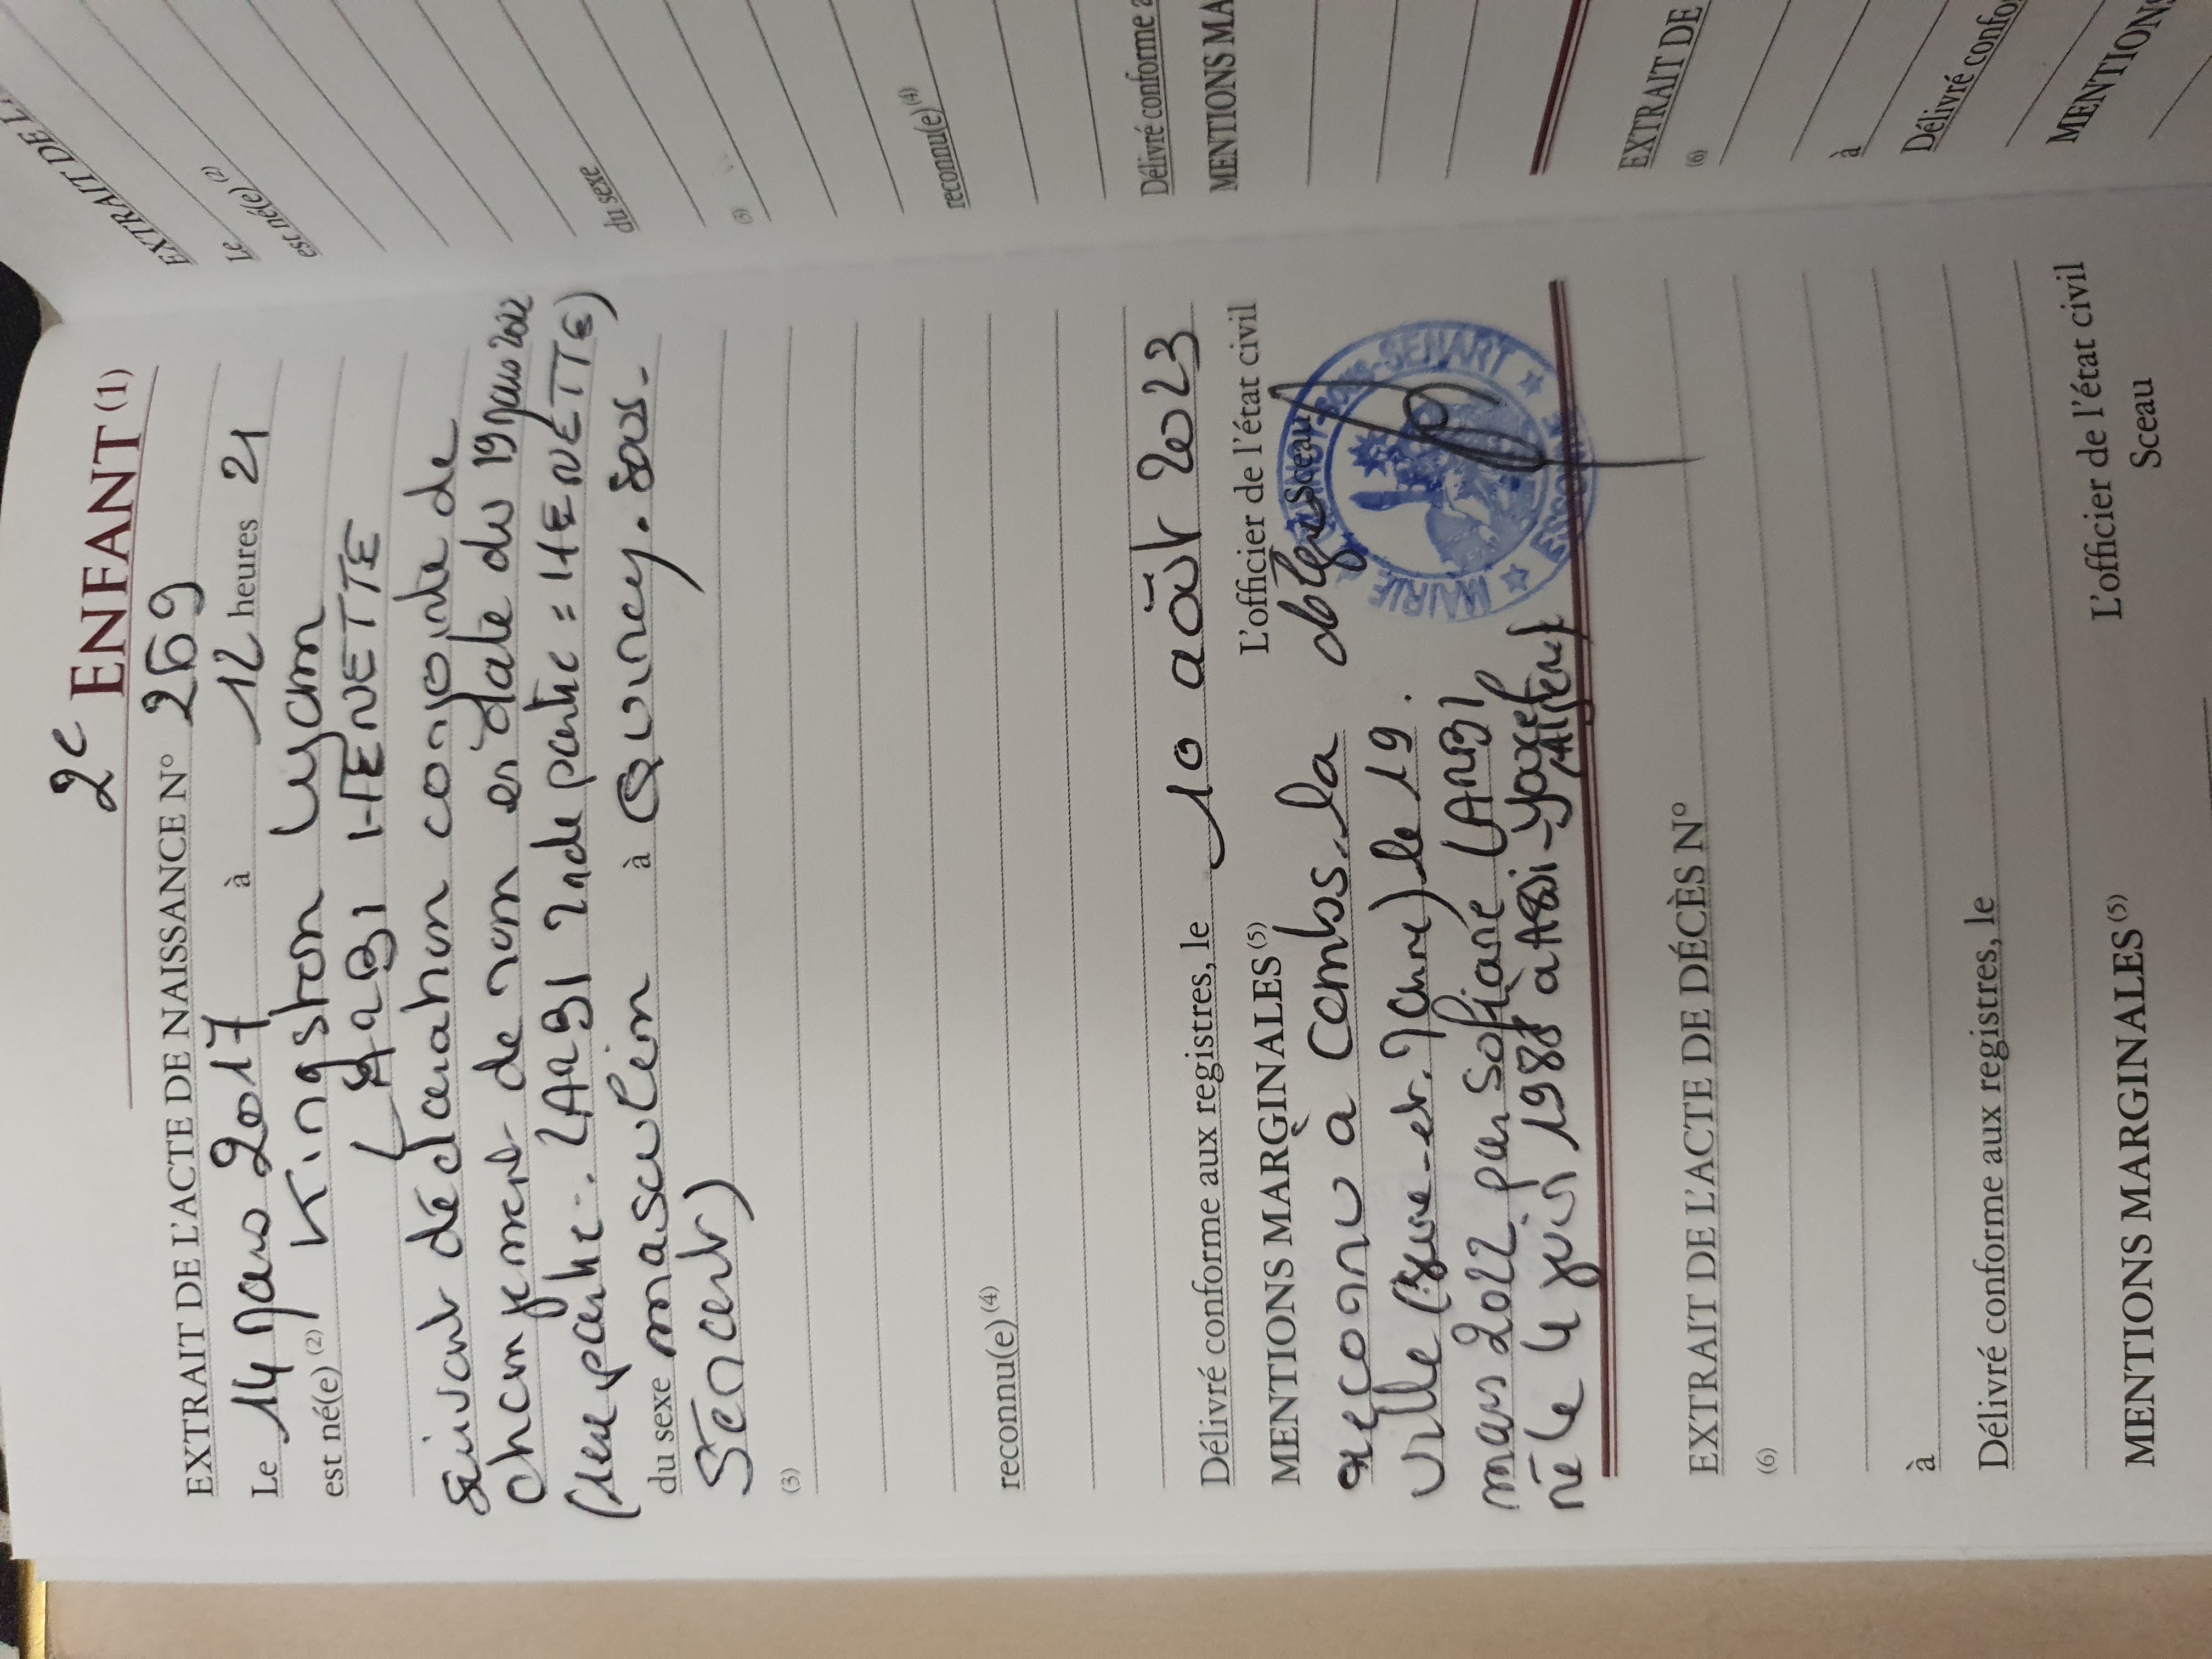 2e ENFANT (1)
EXTRAIT DE L'ACTE DE NAISSANCE N° 269
Le 14 Mars 2017 à 12 heures 21
est né(e) (2) Kingston Lyam
LARBI HENETTE
suivant déclaration conjointe de
changement de nom en date du 19 mars 2022
(1ere partie : LARBI 2nde partie = HENETTE)
du sexe masculin à Quincy-sous-
Sénart)
(3)
reconnu(e) (4)
Délivré conforme aux registres, le 10 août 2023
L'officier de l'état civil
MENTIONS MARGINALES (5)
Sceau
reconnu à Combs-la
ville (Seine-et-Marne) le 19
mars 2022 par Sofiane LARBI
né le 4 juin 1988 à
MAIRIE SOUS-SENART
ESSONNE
EXTRAIT DE L'ACTE DE DÉCÈS N°
(6)
à
Délivré conforme aux registres, le
L'officier de l'état civil
MENTIONS MARGINALES (5)
Sceau
EXTRAIT DE
Le
est né(e) (2)
du sexe
(3)
reconnu(e) (4)
Délivré conforme
MENTIONS
EXTRAIT DE
(6)
à
Délivré
MENTIONS